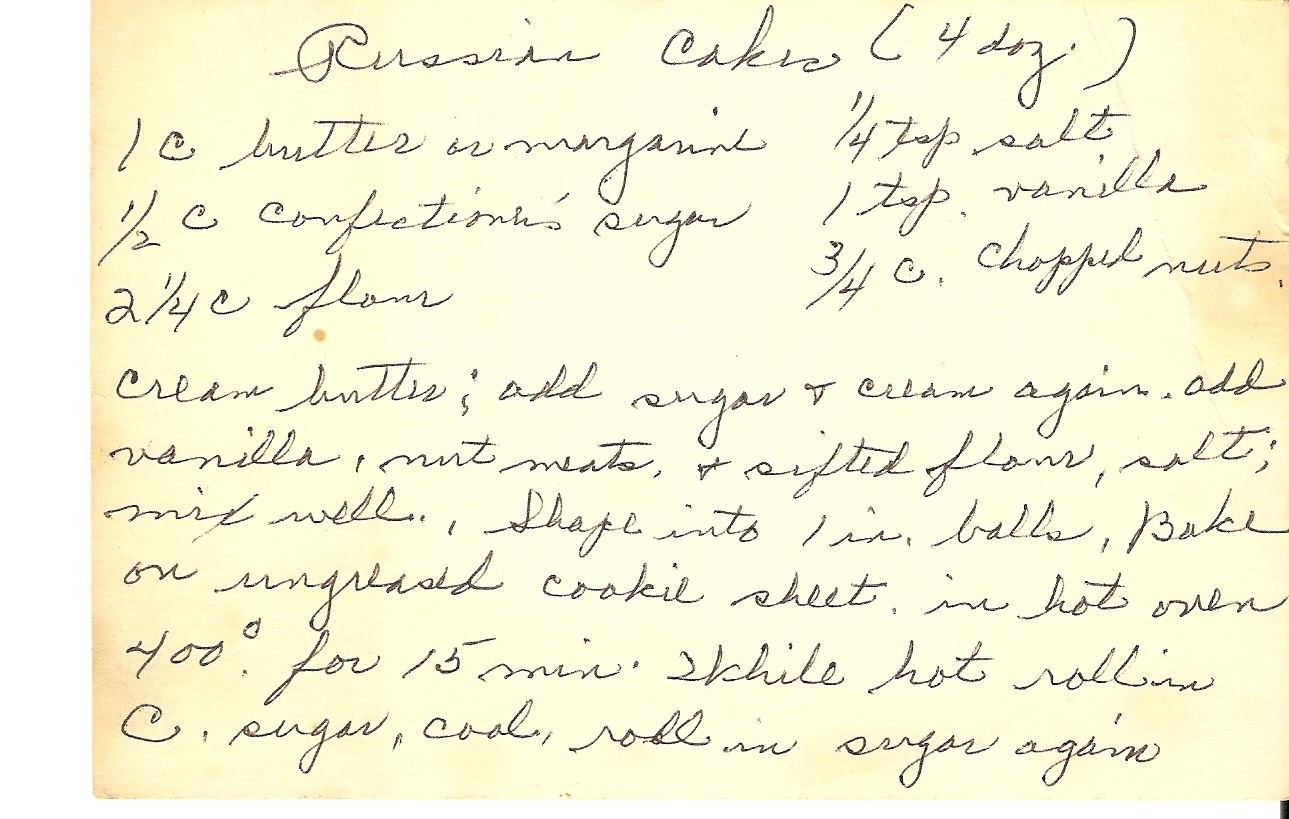 Russian Cakes (4 doz.)
1 C butter or margarine 1/4 tsp salt
1/2 C confectioner's sugar 1 tsp. vanilla
2 1/4 C flour 3/4 C. chopped nuts.
cream butter; add sugar & cream again. add
vanilla, nut meats, & sifted flour, salt;
mix well., Shape into 1 in. balls, Bake
on ungreased cookie sheet. in hot oven
400°. for 15 min. While hot roll in
C. sugar, cool, roll in sugar again